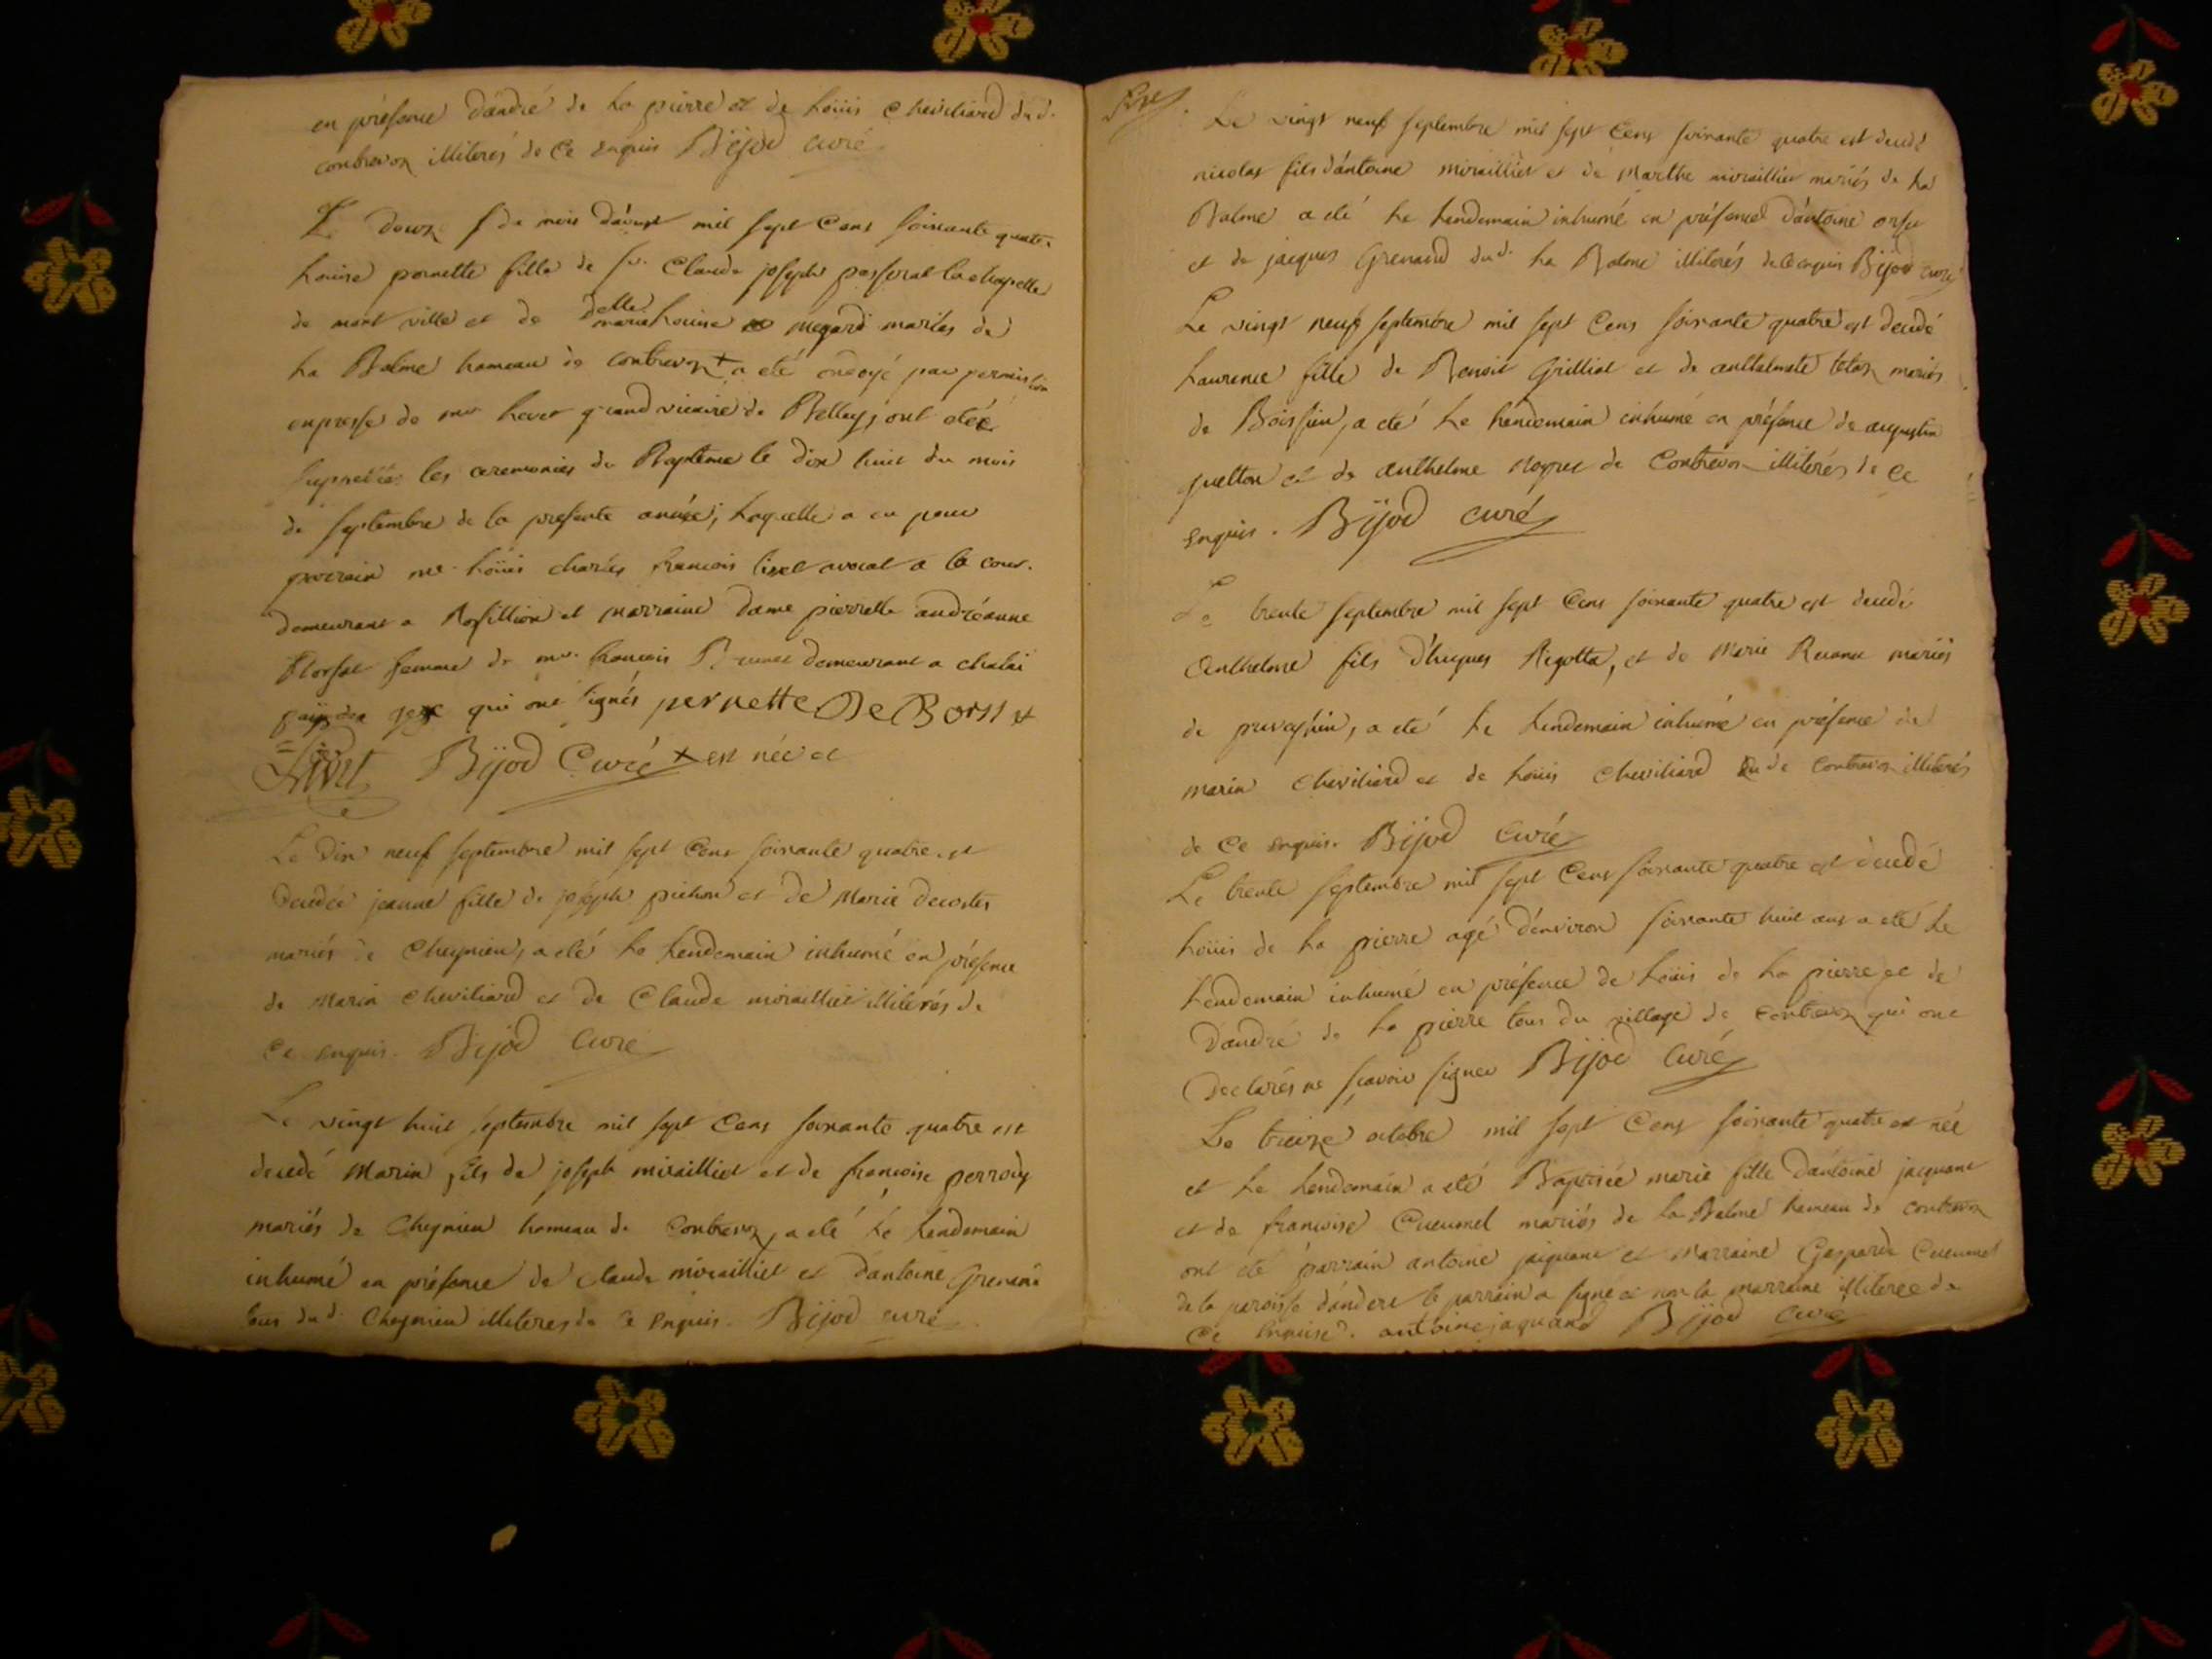 en présence d'andré de la pierre et de loüis Cheviliard dud.
contrevoz illiterés de Ce enquis Bijod curé
Le douze du mois d'aoust mil sept Cens soixante quatre
louise pernette fille de sr. Claude joseph passerat la chapelle
de mont ville et de delle marie louise megard mariés de
la Balme hameau de contrevoz + a eté ondoyé par permission
expresse de mr. grand vicaire de Belley, ont etéé
suppreéés les ceremonies du Baptême le dix huit du mois
de septembre de la presente année, laquelle a eu pour
parrain me. loüis charles francois livet avocat a la cour.
demeurant a Rossillion et marraine dame pierrette andréanne
femme de mr. francois Brunet demeurant a
païs de gex qui ont signés pernette De Borsst
Livet Bijod Curé + est née et
Le dix neuf septembre mil sept Cens soixante quatre est
decedée jeanne fille de joseph pichon et de Marie decostes
mariés de Cheynieu, a eté le lendemain inhumé en présence
de Marin Cheviliard et de Claude mirailliet illiterés de
Ce enquis. Bijod Curé
Le vingt huit septembre mil sept Cens soixante quatre est
decedé Marin fils de joseph miraillied et de francoise perrody
mariés de Cheynieu hameau de Contrevoz, a eté le lendemain
inhumé en présence de claude miraillied et d'antoine Grenand
tous dud. Cheynieu illiteres de Ce Enquis. Bijod curé
Le vingt neuf septembre mil sept Cens soixante quatre est decedé
nicolas fils d'antoine miraillied et de Marthe miraillied mariés de la
Balme a eté le lendemain inhumé en présence d'antoine orset
et de jacques Grenand dud. la Balme illiterés de Ce enquis Bijod curé
Le vingt neuf septembre mil sept Cens soixante quatre est decedé
Laurence fille de Benoit Grilliet et de anthelmete mariés
de Boissieu, a eté le lendemain inhumé en présence de augustin
et de anthelme de Contrevoz illiterés de Ce
enquis. Bijod curé
Le trente septembre mil sept Cens soixante quatre est decedé
Anthelme fils d'hugues Rigotta, et de Marie mariés
de preveyzieu, a eté le lendemain inhumé en présence de
marin Cheviliard et de loüis Cheviliard de Contrevoz illiterés
de Ce enquis. Bijod Curé
Le trente septembre mil sept Cens soixante quatre est decedé
loüis de la pierre agé d'environ soixante huit ans a eté le
lendemain inhumé en présence de loüis de la pierre et de
d'andré de la pierre tous du village de Contrevoz qui ont
declarés ne scavoir signer Bijod Curé
Le treize octobre mil sept Cens soixante quatre est née
et le lendemain a eté Baptisée marie fille d'antoine jacquand
et de francoise Cueunel mariés de la Balme hameau de contrevoz
ont eté parrain antoine jaquand et Marraine Gasparde Cueunel
de la paroisse d'andert le parrain a signé et non la marraine illiterée de
Ce Enquise. antoine jaquand Bijod curé